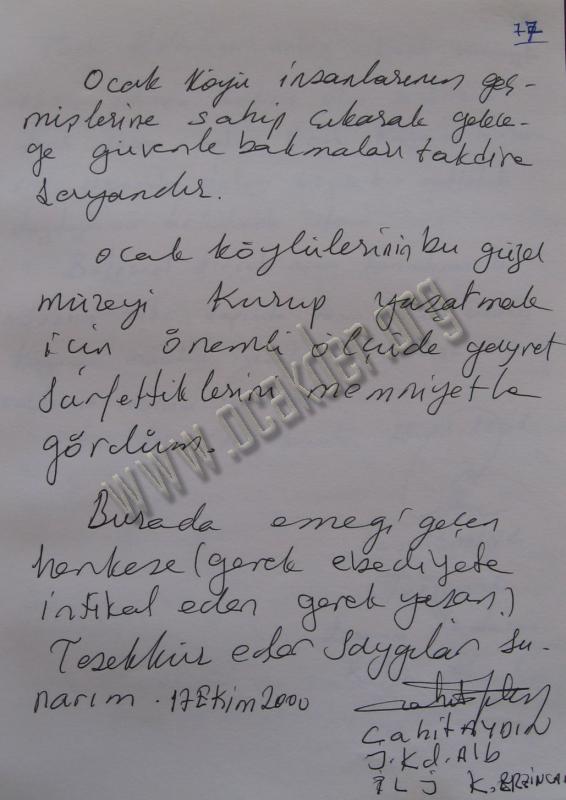 77
Ocak Köyü insanlarının geç-
mişlerine sahip çıkarak gelece-
ğe güvenle bakmaları takdire
şayandır.
Ocak köylülerinin bu güzel
müzeyi kurup yaşatmak
için önemli ölçüde gayret
sarfettiklerini memniyetle
gördüm.
Burada emeği geçen
herkese (gerek ebediyete
intikal eden gerek yaşan.)
Teşekkür eder saygılar su-
narım. 17 Ekim 2000
Cahit AYDIN
J.Kd.Alb
İL J K. ERZİNCAN
www.ocakder.org